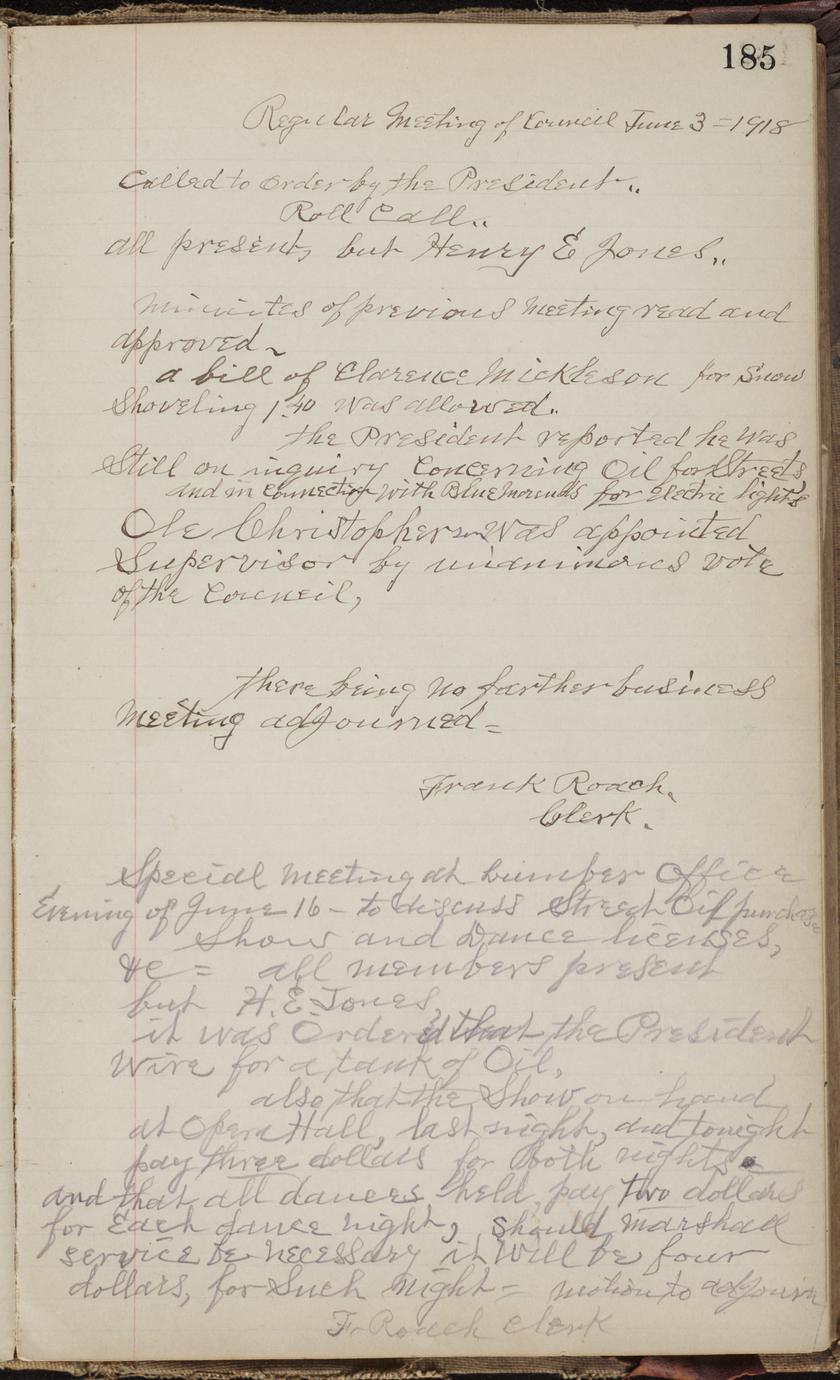 185
Regular Meeting of Council June 3 = 1918
Called to order by the President..
Roll Call..
all present, but Henry E Jones..
minuites of previous Meeting read and
approved ~
a bill of Clarence Mickleson for Snow
Shoveling 1.40 was allowed..
the President reported he was
Still on inquiry Concerning Oil for Streets
and in Connection with Blue mounds for Electric lights
Ole Christopherson was appointed
Supervisor by unanimous vote
of the Council,
there being no farther business
Meeting adjourned =
Frank Roach.
Clerk.
Special Meeting at Lumber Office
Evening of June 16 - to discuss Street Oil purchase
Show and Dance licenses,
&c = all members present
but H. E. Jones,
it was Ordered that the President
Wire for a tank of Oil,
also that the Show on hand
at Opera Hall, last night, and tonight
pay three dollars for both nights =
and that all dances held, pay two dollars
for Each dance night, Should marshall
service be necessary it Will be four
dollars, for Such night = motion to adjourn
F. Roach Clerk